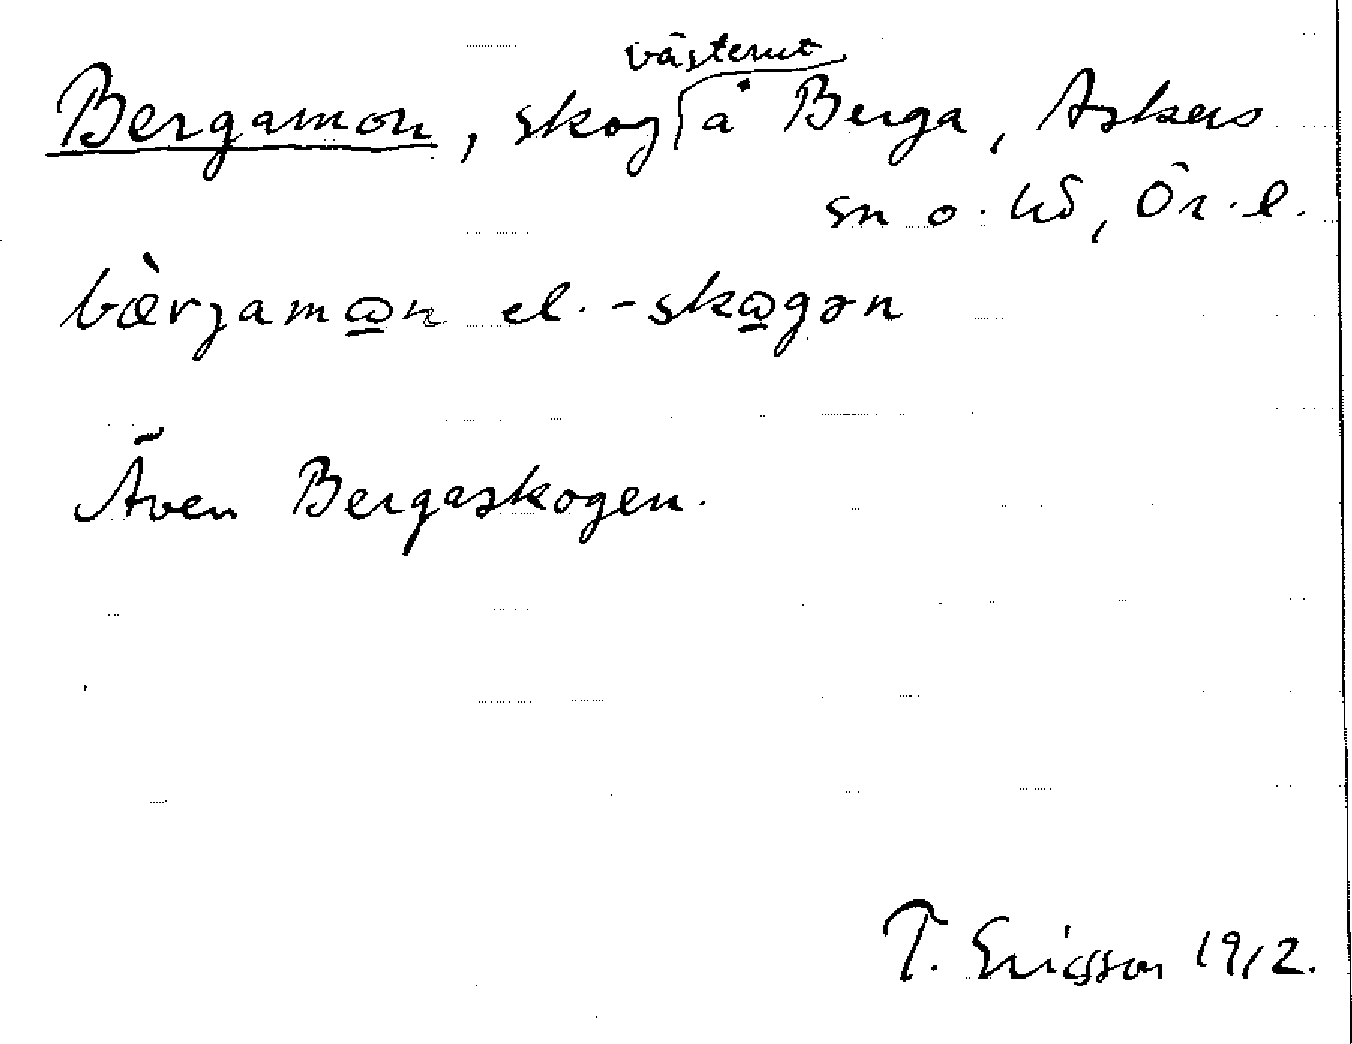 Bergamon, skog västerut å Berga, Askers
sn o. hd, Ör. l.
bèrjamωn el. -skωgən
Även Bergaskogen.
T. Ericsson 1912.